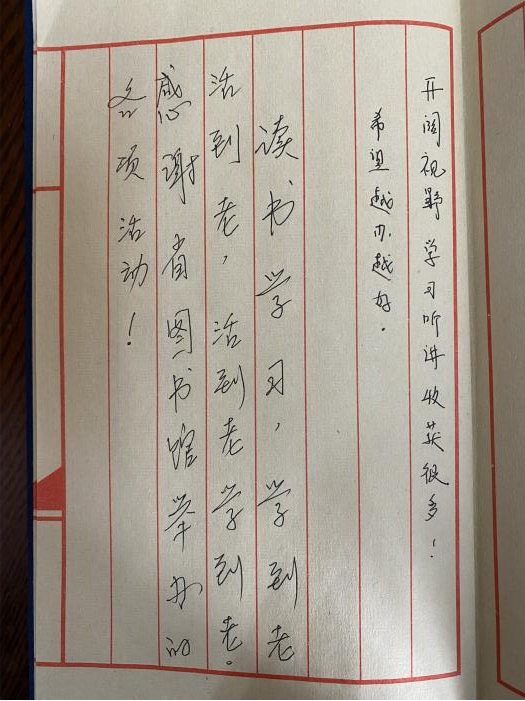 开阔视野学习听讲收获很多！
希望越办越好.
读书学习，学到老
活到老，活到老学到老。
感谢省图书馆举办的
各项活动！